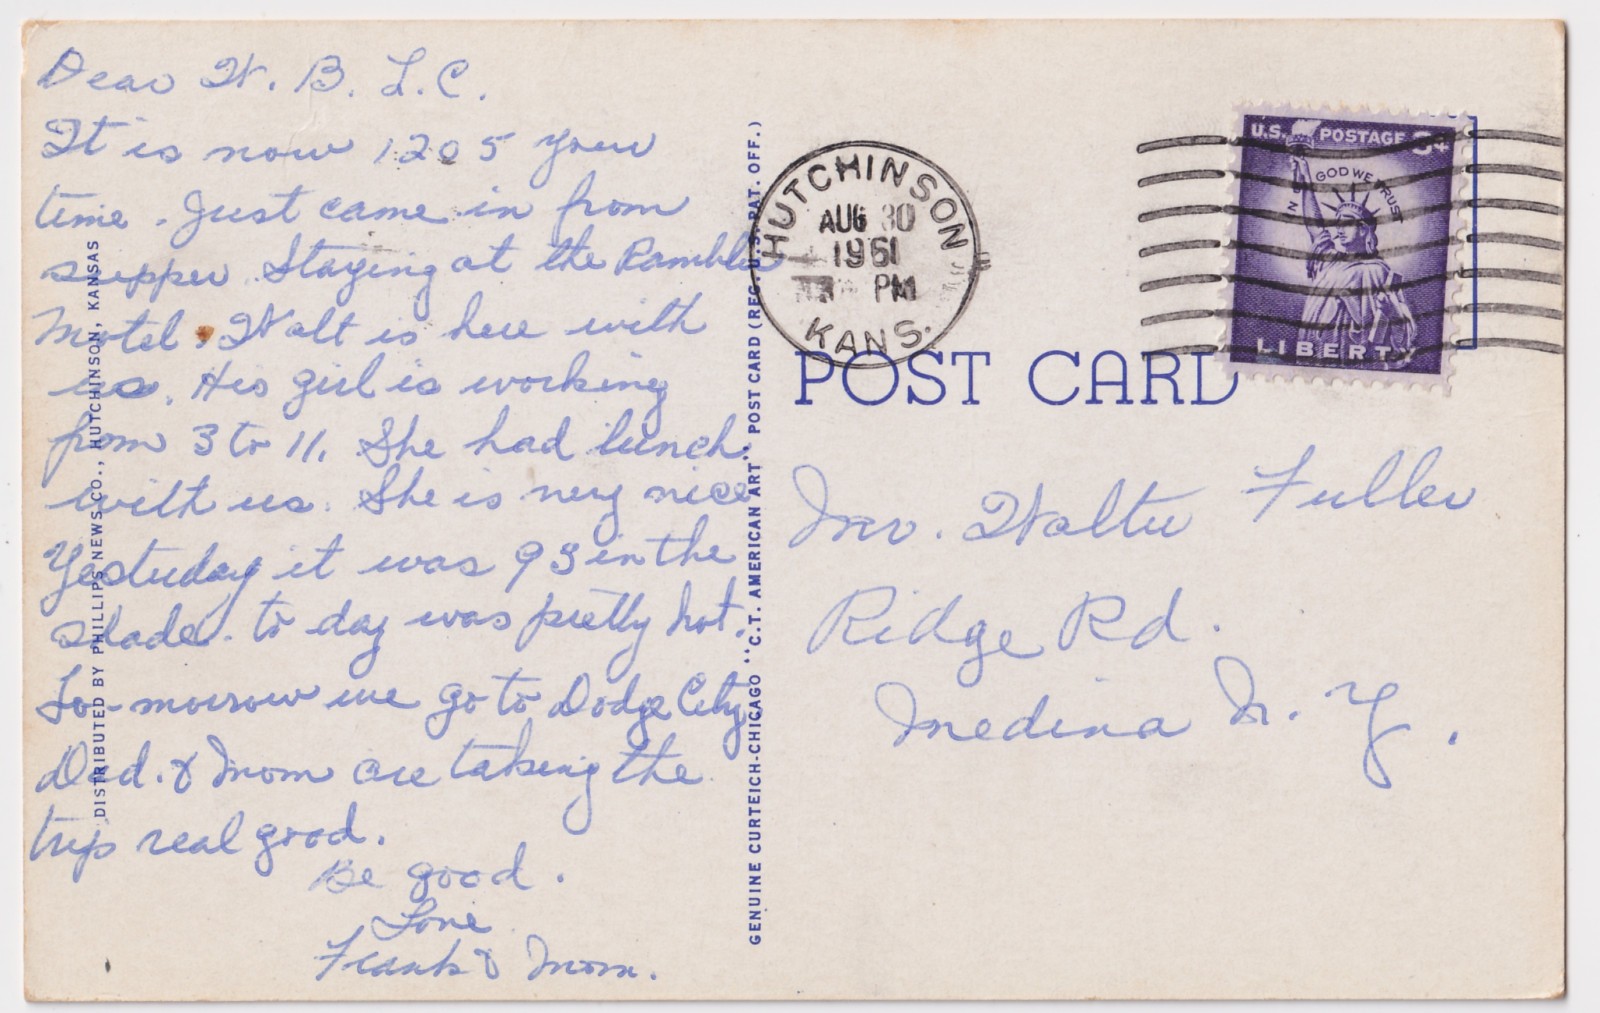 Dear W. B. L. C.
It is now 1205 your
time. Just came in from
supper. Staying at the Rambler
Motel. Walt is here with
us. His girl is working
from 3 to 11. She had lunch
with us. She is very nice
Yesterday it was 93 in the
shade. to day was pretty hot.
To-morrow we go to Dodge City
Dad. & Mom are taking the
trip real good.
Be good.
Love
Frank & Mom.
DISTRIBUTED BY PHILLIPS NEWS CO., HUTCHINSON, KANSAS
GENUINE CURTEICH-CHICAGO "C.T. AMERICAN ART" POST CARD (REG. U.S. PAT. OFF.)
HUTCHINSON
AUG 30
1961
PM
KANS.
U.S. POSTAGE 3¢
IN GOD WE TRUST
LIBERTY
POST CARD
Mr. Walter Fuller
Ridge Rd.
Medina N. Y.